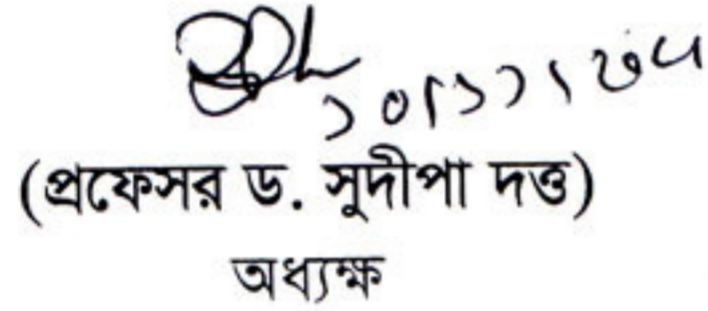 ১০/১১/২৫
(প্রফেসর ড. সুদীপা দত্ত)
অধ্যক্ষ